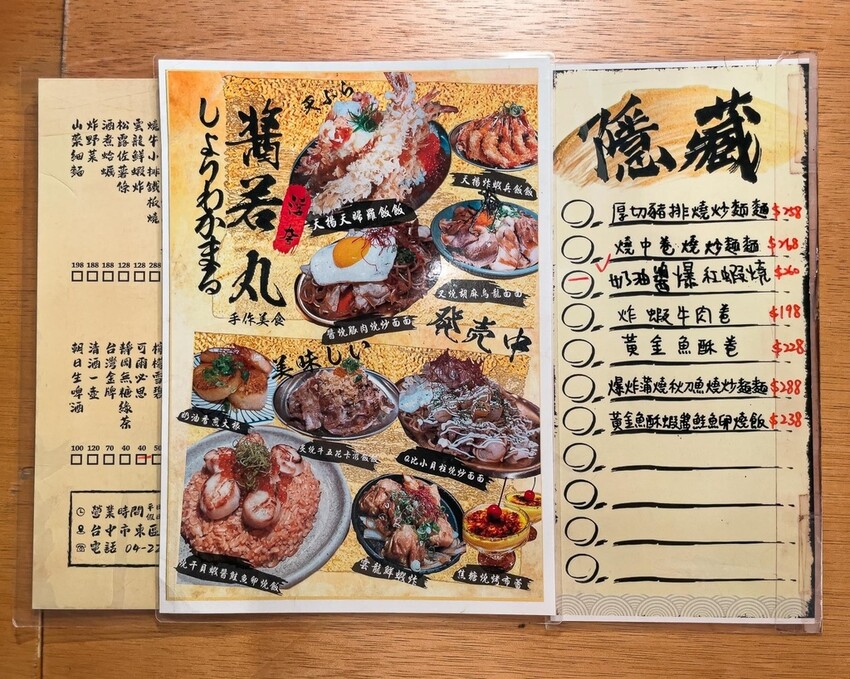 山藥細麵
炸野菜
酒煮蛤蠣
松露佐薯條
雲龍鮮蝦炸
燒牛小排鐵板燒
198
188
188
128
128
288
朝日生啤酒
清酒一壺
台灣金牌
靜岡無糖綠茶
可爾必思
檸檬雪碧
100
120
70
40
40
50
營業時間
台中市東區
電話 04-22
しょうわかまる
醬若丸
手作美食
天ぷら
天揚天婦羅飯飯
天揚炸蝦兵飯飯
醬燒豚肉燒炒麵面
叉燒胡麻烏龍面面
発売中
美味しい
奶油香煎大根
炙燒牛五花卡滋飯飯
Q比小貝柱燒炒面面
干貝蝦醬鮭魚卵燒飯
雲龍鮮蝦炸
焦糖燒烤布蕾
隱藏
厚切豬排燒炒麵麵 $258
燒中卷燒炒麵麵 $268
奶油醬爆紅蝦燒 $260
炸蝦牛肉卷 $198
黃金魚酥卷 $228
爆炸蒲燒秋刀魚燒炒麵麵 $288
黃金魚酥蝦醬鮭魚卵燒飯 $238